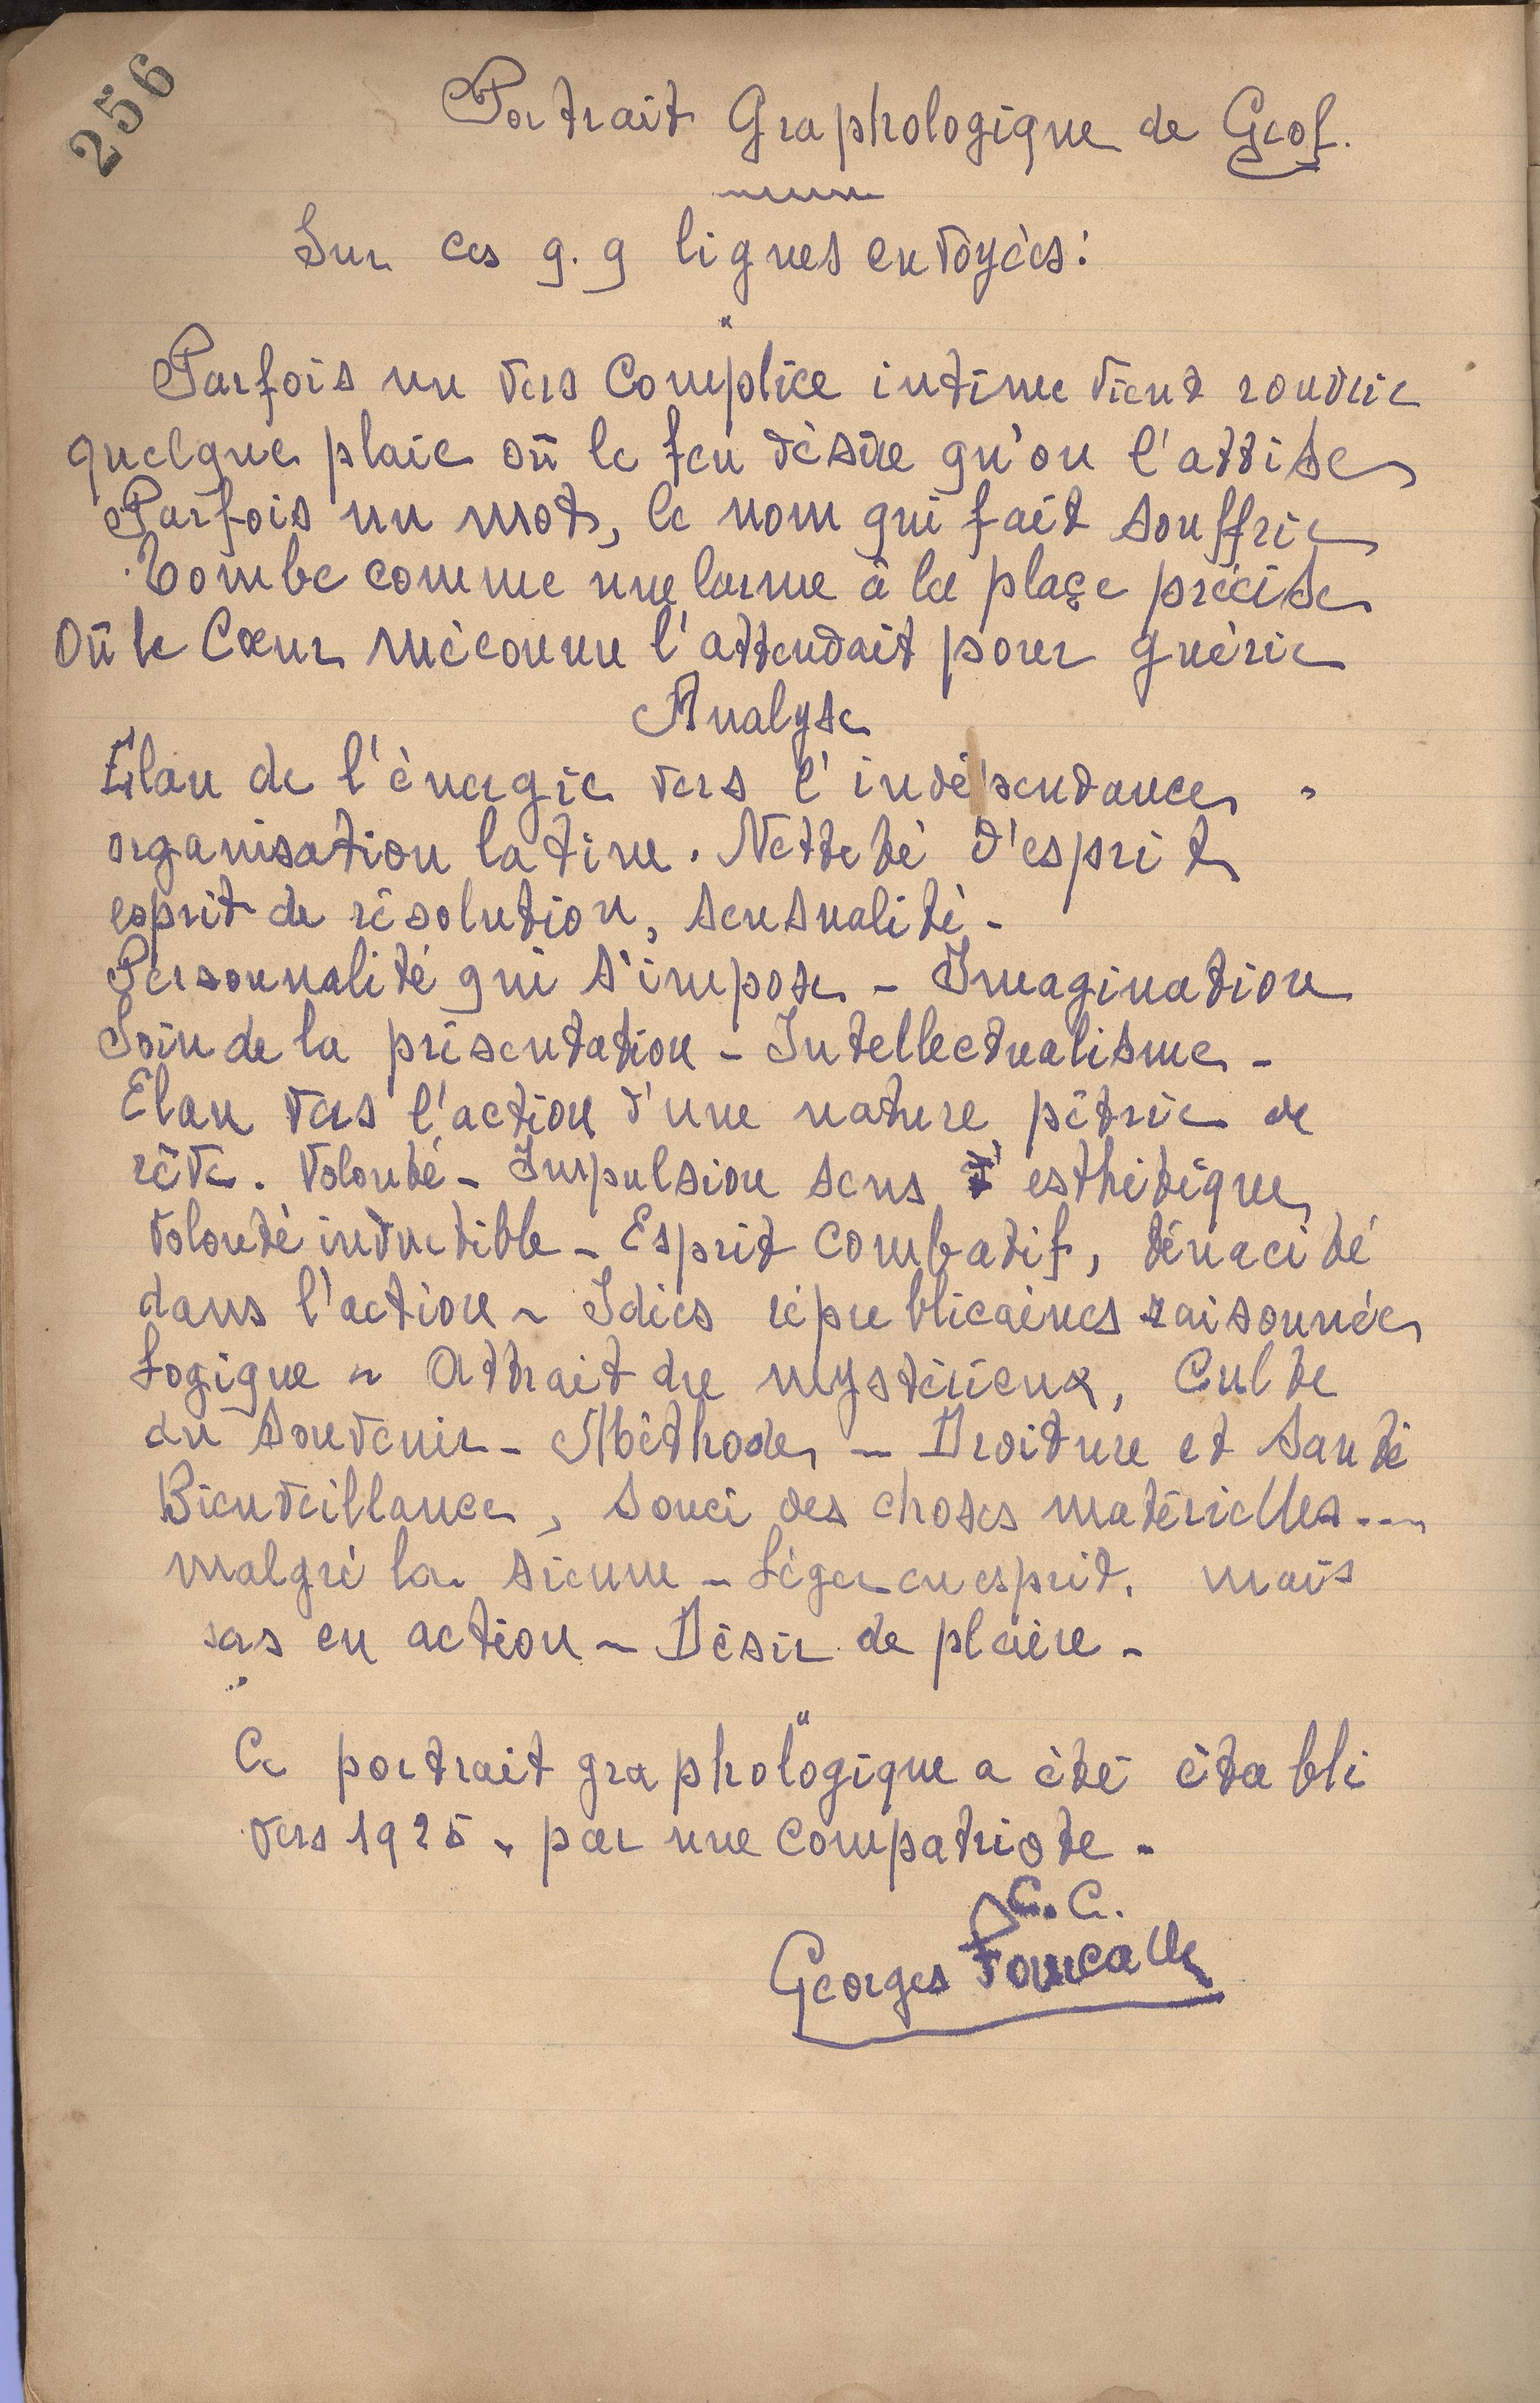 256
Portrait Graphologique de Geof.
Sur ces q.q lignes envoyées:
Parfois un vers complice intime vient rouvrir
quelque plaie où le feu désire qu'on l'attise
Parfois un mot, le nom qui fait souffrir
Tombe comme une larme à la plaçe précise
Où le Cœur méconnu l'attendait pour guérir
Analyse
Élan de l'énergie vers l'indépendance,
organisation latine. Netteté d'esprit
esprit de résolution, sensualité -
Personnalité qui s'impose - Imagination
Soin de la présentation - Intellectualisme -
Elan vers l'action d'une nature pétrie de
rêve. Volonté - Impulsion sens esthétique
Volonté inductible - Esprit combatif, ténacité
dans l'action ~ Idées républicaines raisonnées
Logique ~ Attrait du mystérieux, Culte
du Souvenir - Méthode - Droiture et Santé
Bienveillance, souci des choses matérielles....
malgré la sienne - Léger en esprit, mais
pas en action ~ Désir de plaire -
Ce portrait graphologique a été établi
vers 1925 - par une compatriote -
C. C.
Georges